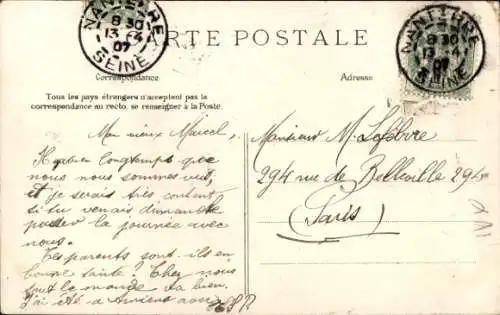 CARTE POSTALE
NANTERRE
8 30
13 -4
07
SEINE
NANTERRE
8 30
13 -4
07
SEINE
Correspondance
Adresse
Tous les pays étrangers n'acceptent pas la
correspondance au recto, se renseigner à la Poste.
Mon vieux Marcel,
Il y a bien longtemps que
nous nous sommes vus,
et je serais très content
si tu venais dimanche
passer la journée avec
nous.
Tes parents sont-ils en
bonne santé? Chez nous
tout le monde va bien.
J'ai été à Amiens avec
Monsieur M. Lefebvre
294 rue de Belleville 294
(Paris)